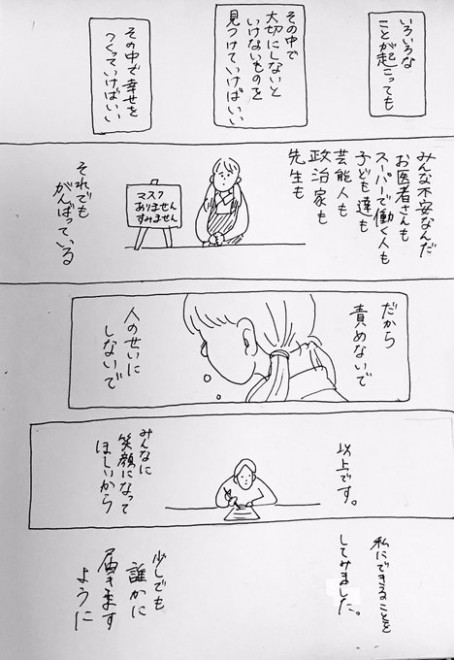 いろいろな
ことが起こっても
その中で
大切にしないと
いけないものを
見つけていけばいい
その中で幸せを
つくっていけばいい
みんな不安なんだ
お医者さんも
スーパーで働く人も
子ども達も
芸能人も
政治家も
先生も
マスク
ありません
すみません
それでも
がんばっている
だから
責めないで
人のせいに
しないで
以上です。
みんなに
笑顔になって
ほしいから
私にできることを
してみました。
少しでも
誰かに
届きます
ように